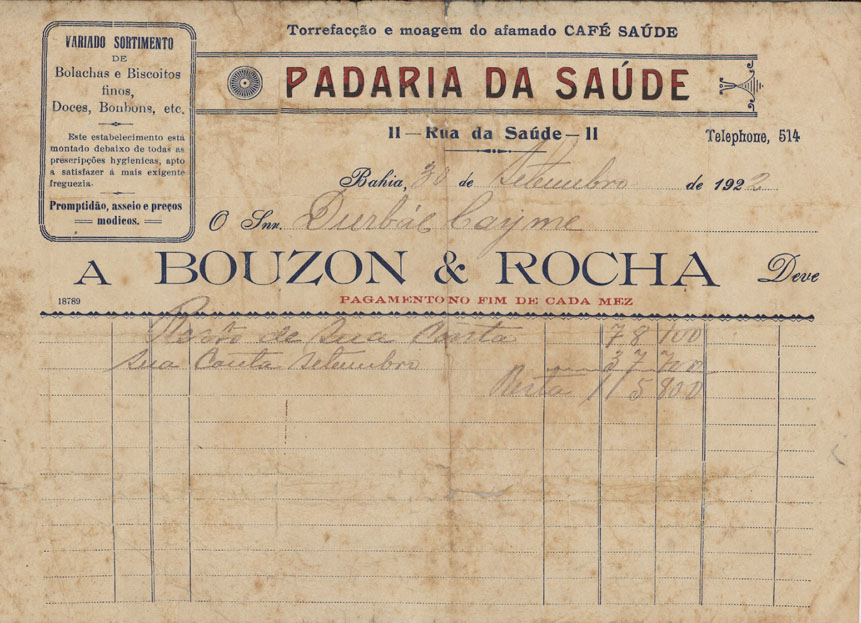 Torrefacção e moagem do afamado CAFÉ SAÚDE
VARIADO SORTIMENTO
DE
Bolachas e Biscoitos
finos,
Doces, Bonbons, etc.
Este estabelecimento está
montado debaixo de todas as
prescripções hygienicas, apto
a satisfazer á mais exigente
freguezia.
Promptidão, asseio e preços
modicos.
PADARIA DA SAÚDE
11—Rua da Saúde—11
Telephone, 514
Bahia, 30 de Setembro de 1922
O Snr. Durbál Cayme
A BOUZON & ROCHA Deve
18789
PAGAMENTO NO FIM DE CADA MEZ
Resto de sua Conta 78 100
sua Conta setembro 37 700
115 800